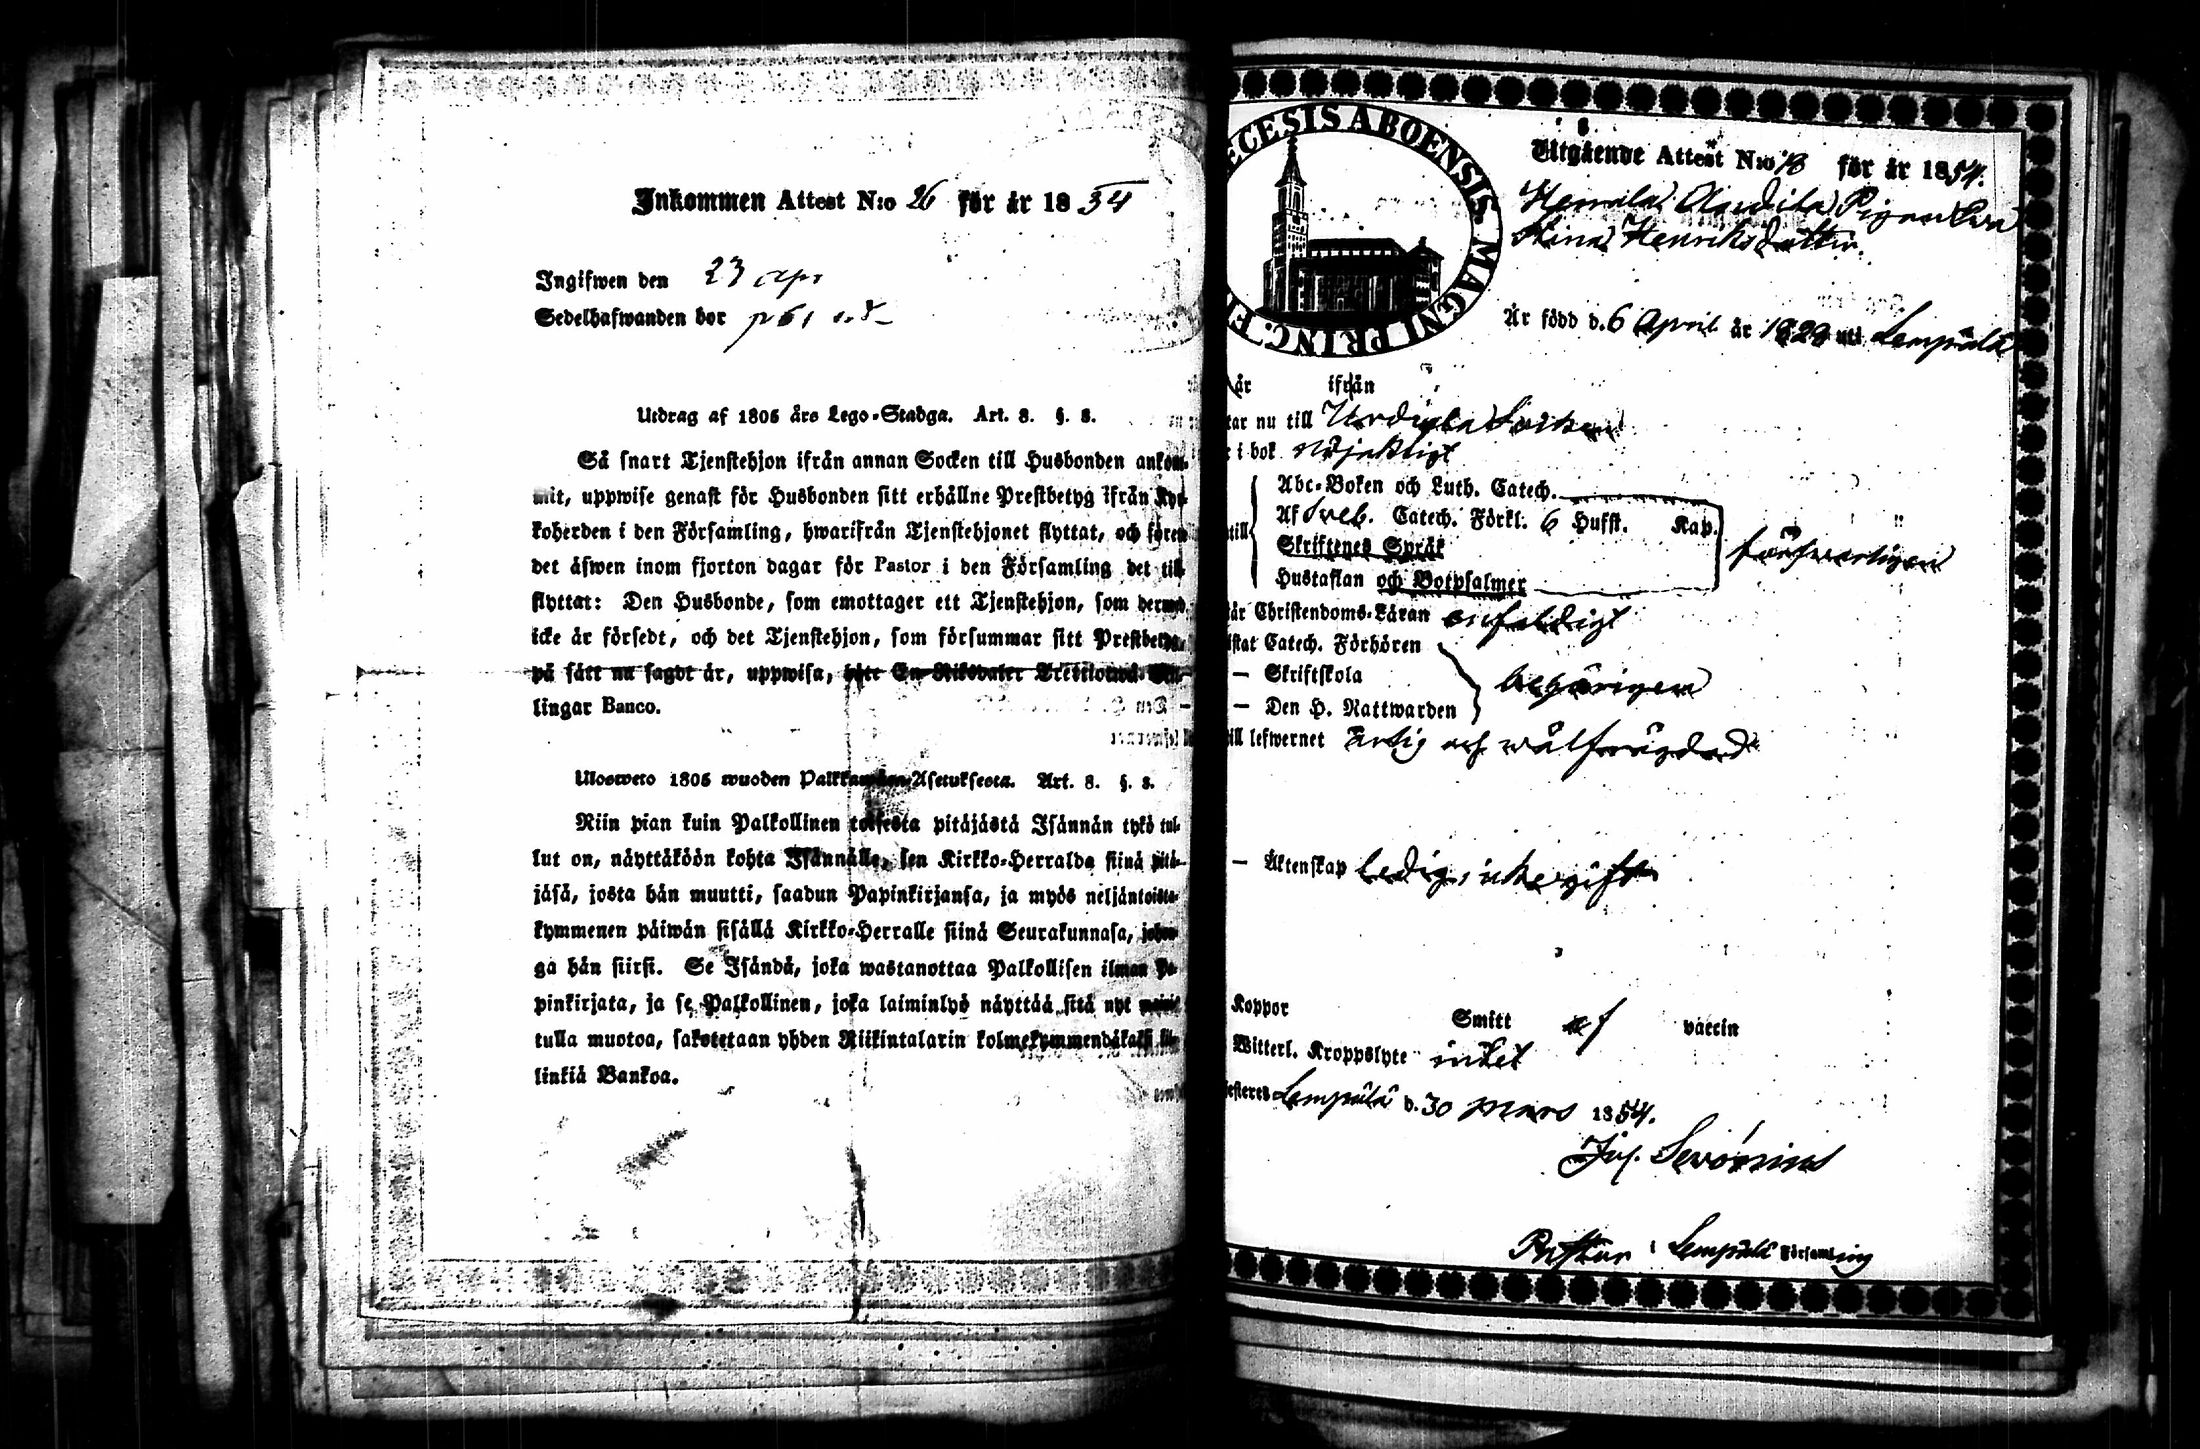 Inkommen Attest N:o 26 för år 1854
Ingifwen den 23 apr
Sedelhafwanden bor p 61
Utdrag af 1805 års Lego-Stadga. Art. 8. §. 8.
Så snart Tjenstehjon ifrån annan Socken till Husbonden ankom-
mit, uppwise genast för Husbonden sitt erhållne Prestbetyg ifrån Kyr-
koherden i den Församling, hwarifrån Tjenstehjonet flyttat, och förete
det äfwen inom fjorton dagar för Pastor i den Församling det till
flyttat: Den Husbonde, som emottager ett Tjenstehjon, som dermed
icke är försedt, och det Tjenstehjon, som försummar sitt Prestbetyg,
på sått nu sagdt är, uppwisa, böte En Riksdaler Trettiotwå Skil-
lingar Banco.
Ulosweto 1805 wuoden Palkkawäen-Asetuksesta. Art. 8. §. 8.
Niin pian kuin Palkollinen toisesta pitäjästä Isännän tykö tul-
lut on, näyttäköön kohta Isännälle, sen Kirkko-Herralda siinä pitä-
jäsä, josta hän muutti, saadun Papinkirjansa, ja myös neljäntoista-
kymmenen päiwän sisällä Kirkko-Herralle siinä Seurakunnasa, johon-
ga hän siirsi. Se Isändä, joka wastanottaa Palkollisen ilman Pa-
pinkirjata, ja se Palkollinen, joka laiminlyö näyttää sitä nyt mainit-
tulla muotoa, sakotetaan yhden Riikintalarin kolmekymmendäkaksi sil-
linkiä Bankoa.
ECESIS ABOENSIS MAGNI PRINC.
Utgående Attest N:o 18 för år 1854.
Piga Eva
Stina Henriksdotter
Är född d. 6 April år 1829 uti Lempälä
år ifrån
tar nu till Urdiala Socken
i bok nöjaktigt
till
Abc-Boken och Luth. Catech.
Af Sveb. Catech. Förkl. 6 Hufst. Kap.
Skriftenes Språk
Hustaflan och Botpsalmer
försvarligen
Christendoms-Läran enfaldigt
Catech. Förhören
— Skriftskola
— Den H. Nattwarden
behörigen
till lefwernet ärlig och wälfrägdad
— Äktenskap ledig, icke gift
Koppor Smitt af vaccin
Witterl. Kroppslyte intet
Lempälä d. 30 Mars 1854.
Joh. Servónius
Pastor i Lempälä Församling